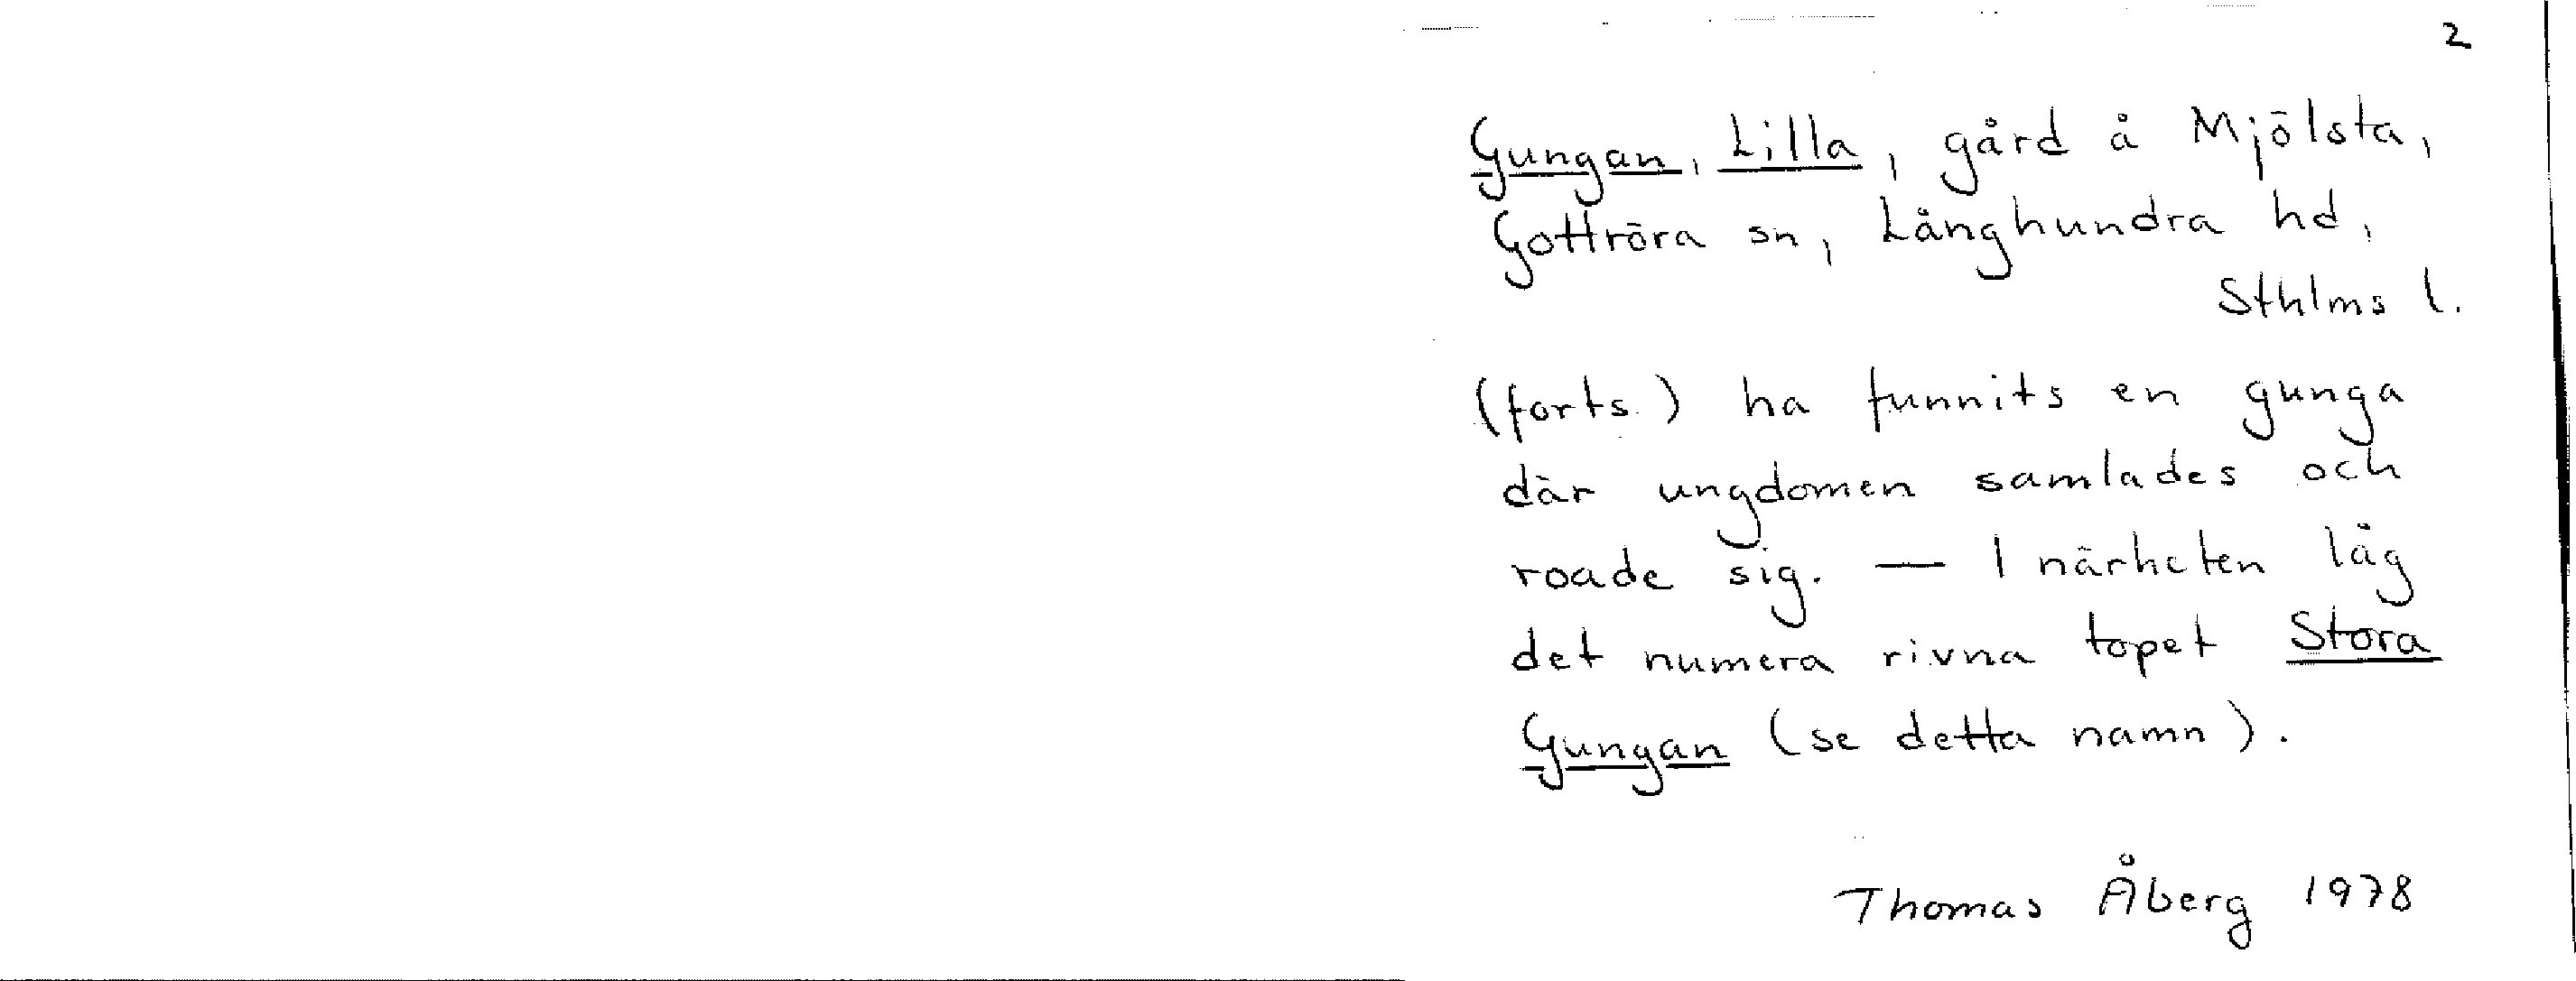 2
Gungan, Lilla, gård å Mjölsta,
Gottröra sn, Långhundra hd,
Sthlms l.
(forts.) ha funnits en gunga
där ungdomen samlades och
roade sig. — I närheten låg
det numera rivna topet Stora
Gungan (se detta namn).
Thomas Åberg 1978